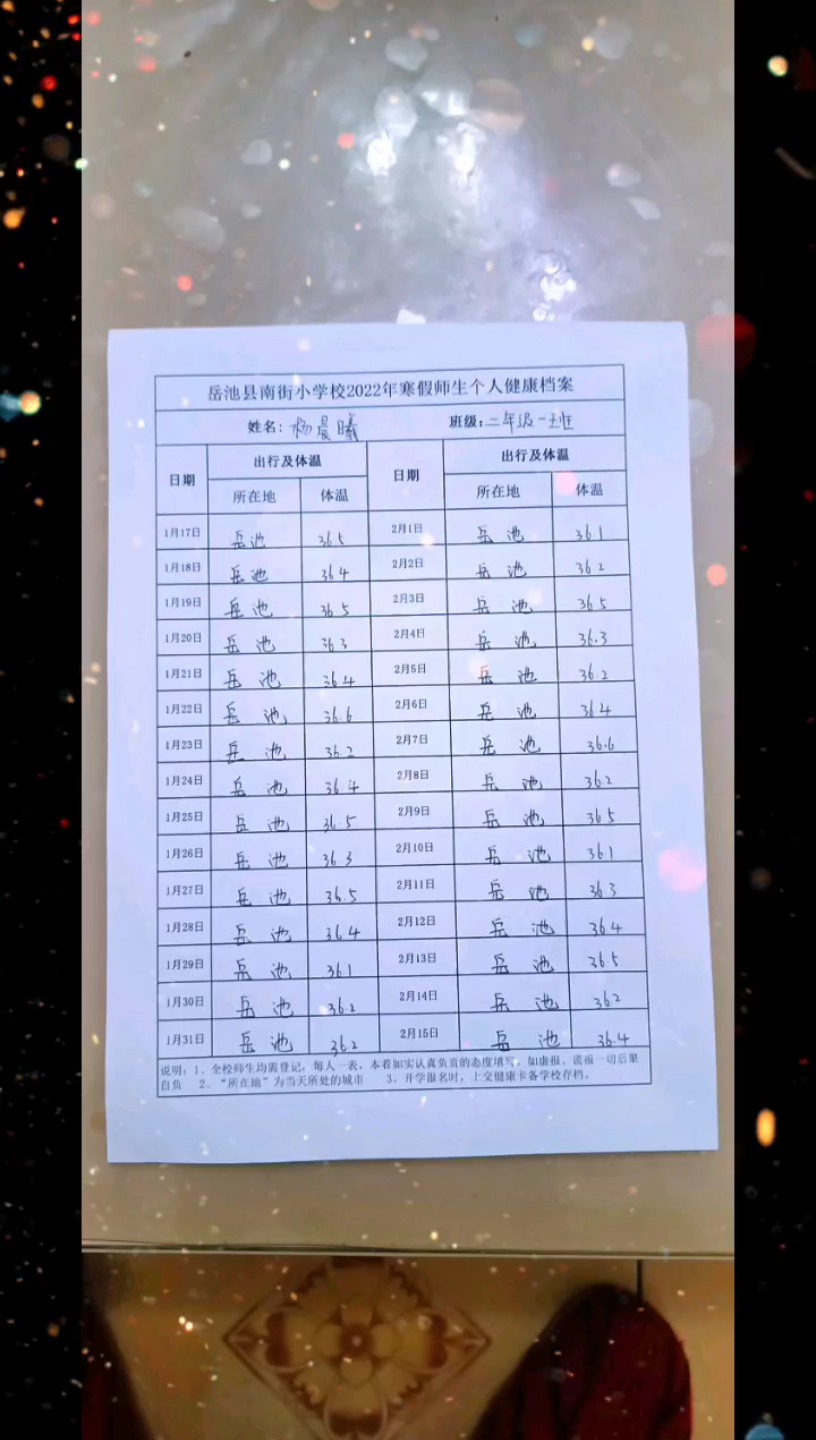 岳池县南街小学校2022年寒假师生个人健康档案
姓名：杨晨曦 班级：二年级一班
日期 出行及体温 日期 出行及体温
所在地 体温 所在地 体温
1月17日 岳池 36.5 2月1日 岳池 36.1
1月18日 岳池 36.4 2月2日 岳池 36.2
1月19日 岳池 36.5 2月3日 岳池 36.5
1月20日 岳池 36.3 2月4日 岳池 36.3
1月21日 岳池 36.4 2月5日 岳池 36.2
1月22日 岳池 36.6 2月6日 岳池 36.4
1月23日 岳池 36.2 2月7日 岳池 36.6
1月24日 岳池 36.4 2月8日 岳池 36.2
1月25日 岳池 36.5 2月9日 岳池 36.5
1月26日 岳池 36.3 2月10日 岳池 36.1
1月27日 岳池 36.5 2月11日 岳池 36.3
1月28日 岳池 36.4 2月12日 岳池 36.4
1月29日 岳池 36.1 2月13日 岳池 36.5
1月30日 岳池 36.2 2月14日 岳池 36.2
1月31日 岳池 36.2 2月15日 岳池 36.4
说明：1、全校师生均需登记，每人一表，本着如实认真负责的态度填写，如虚报、谎报一切后果
自负 2、“所在地”为当天所处的城市 3、开学报名时，上交健康卡备学校存档。